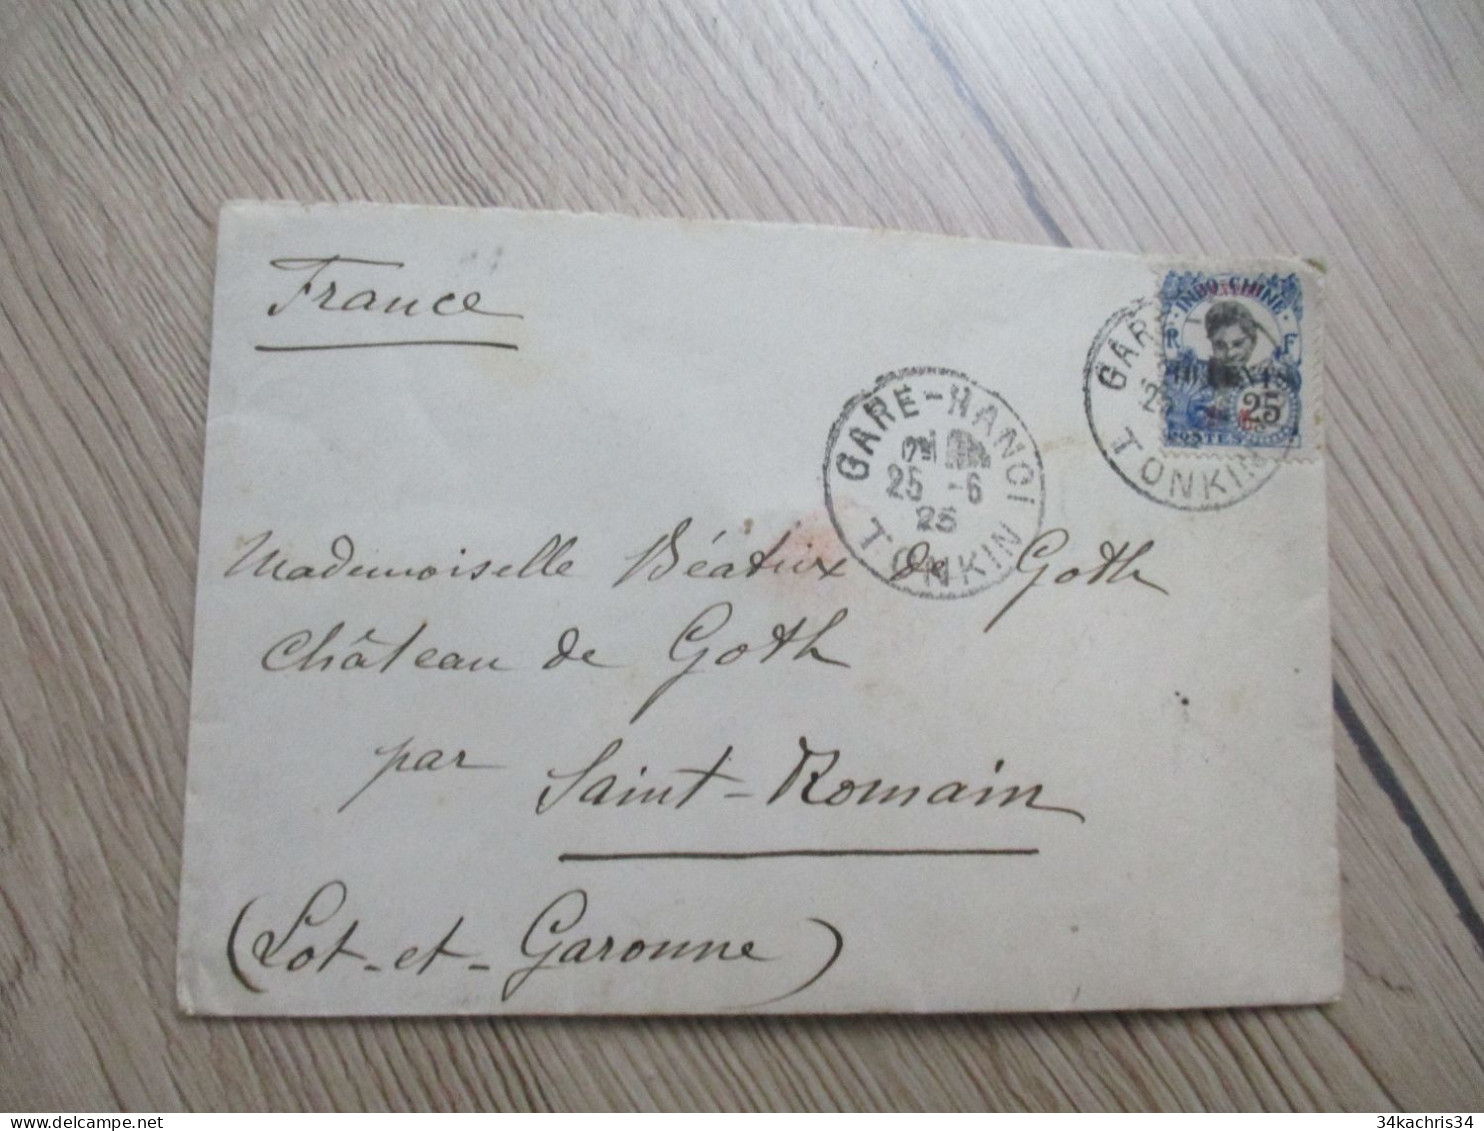 France
INDO-CHINE
R F
10 CENTS
25
POSTES
GARE
25
TONKIN
GARE-HANOI
25 -6
25
TONKIN
Mademoiselle Béatrix de Goth
Château de Goth
par Saint-Romain
(Lot-et-Garonne)
34kachris34